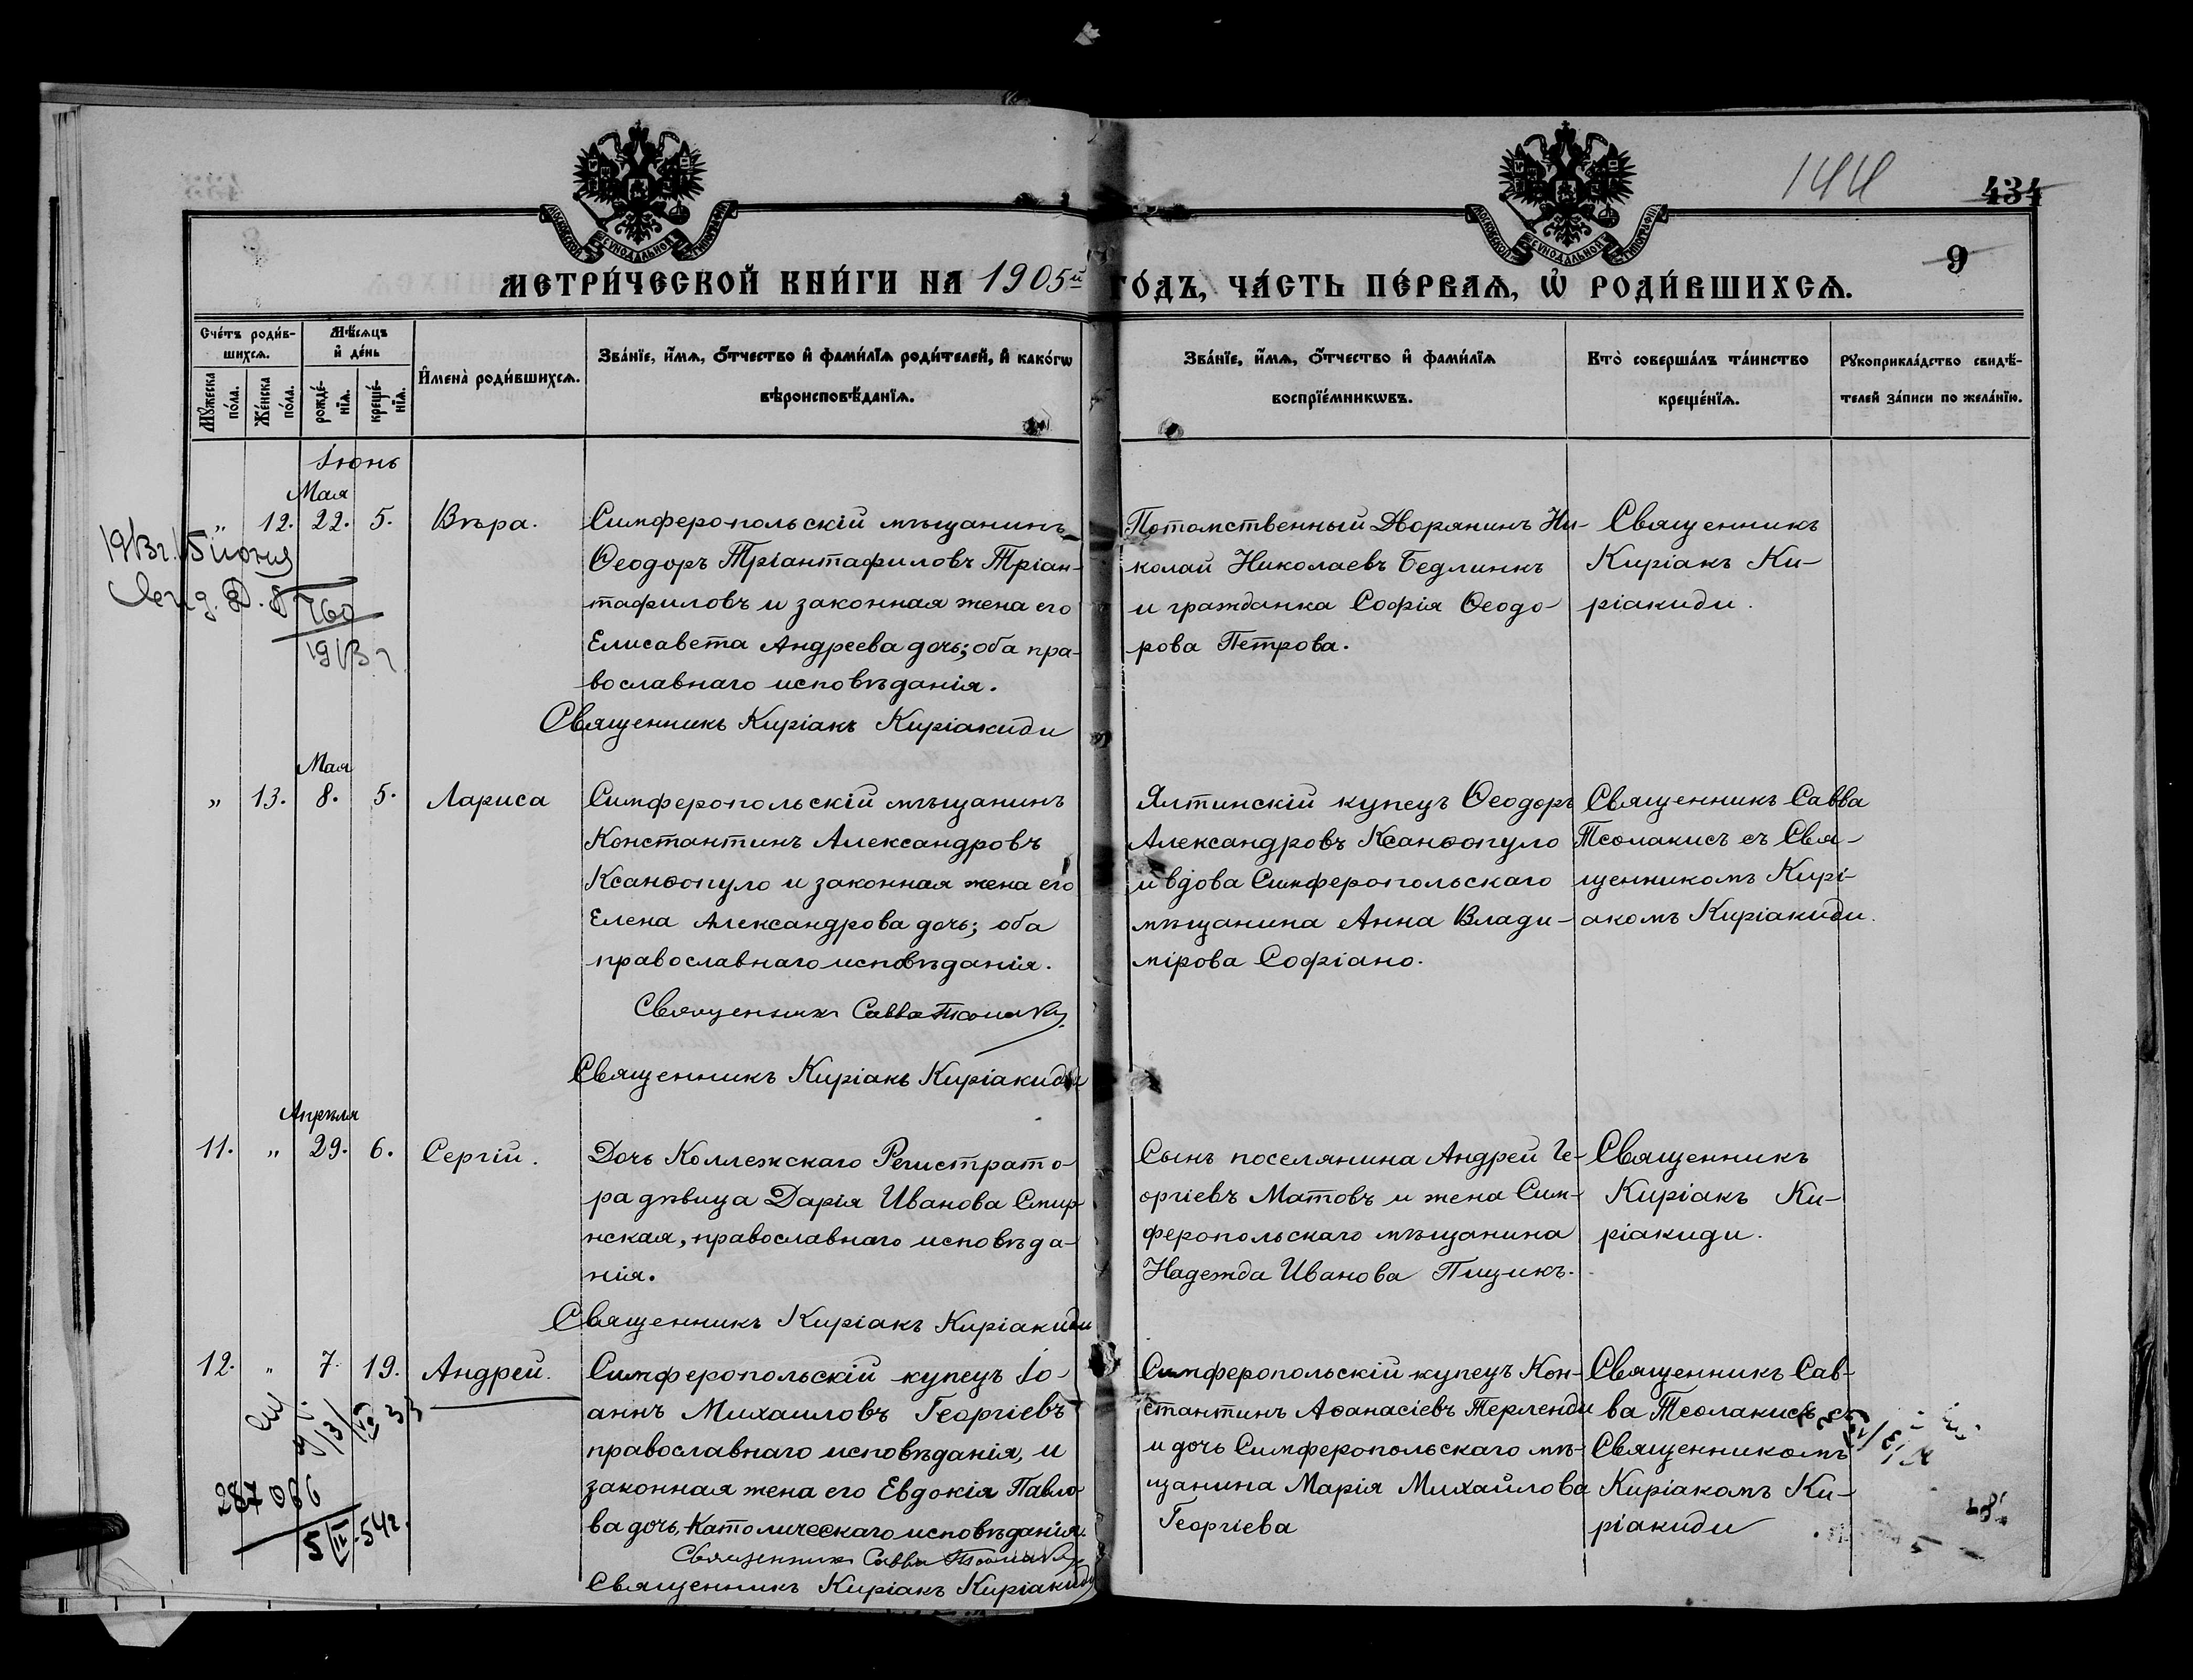 144
434
9
МОСКОВСКОЙ СѴНОДАЛЬНОЙ ТИПОГРАФІИ
МОСКОВСКОЙ СѴНОДАЛЬНОЙ ТИПОГРАФІИ
МЕТРИ́ЧЕСКОЙ КНИ́ГИ НА 1905й ГО́ДЪ, ЧА́СТЬ ПЕ́РВАѦ, Ѡ҆ РОДИ́ВШИХСѦ.
Сче́тъ роди́в-
шихсѧ.
Мꙋ́жеска
по́ла.
Же́нска
по́ла.
Мѣ́сѧцъ
и҆ де́нь
рожде́-
нїѧ.
креще́-
нїѧ.
И҆мена̀ роди́вшихсѧ.
Зва́нїе, и҆́мѧ, ѻ҆́тчество и҆ фами́лїѧ роди́телей, и҆ како́гѡ
вѣроисповѣ́данїѧ.
Зва́нїе, и҆́мѧ, ѻ҆́тчество и҆ фами́лїѧ
воспрїе́мникѡвъ.
Кто̀ соверша́лъ та́инство
креще́нїѧ.
Рꙋкоприкла́дство свидѣ́-
телей за́писи по жела́нїю.
Іюнь
Мая
„ 12. 22. 5. Вѣра.
Симферопольскій мѣщанинъ
Ѳеодоръ Тріантафиловъ Тріан-
тафиловъ и законная жена его
Елисавета Андреева дочь; оба пра-
вославнаго исповѣданія.
Священникъ Киріакъ Киріакиди
Потомственный Дворянинъ Ни-
колай Николаевъ Бедлинкъ
и гражданка Софія Ѳеодо-
рова Петрова.
Священникъ
Киріакъ Ки-
ріакиди.
1913г. 15 июня
760
1913 г
Мая
„ 13. 8. 5. Лариса
Симферопольскій мѣщанинъ
Константинъ Александровъ
Ксанѳопуло и законная жена его
Елена Александрова дочь; оба
православнаго исповѣданія.
Священникъ Савва
Священникъ Киріакъ Киріакиди
Ялтинскій купецъ Ѳеодоръ
Александровъ Ксанѳопуло
и вдова Симферопольскаго
мѣщанина Анна Влади-
мірова Софіано.
Священникъ Савва
Тсолакисъ съ Свя-
щенникомъ Кирі-
акомъ Киріакиди.
Апрѣля
11. „ 29. 6. Сергій.
Дочь Коллежскаго Регистрато-
ра дѣвица Дарія Иванова Смир-
нская, православнаго исповѣда-
нія.
Священникъ Киріакъ Киріакиди
Сынъ поселянина Андрей Ге-
оргіевъ Матовъ и жена Сим-
феропольскаго мѣщанина
Надежда Иванова Пищикъ.
Священникъ
Киріакъ Ки-
ріакиди.
12. „ 7. 19. Андрей.
Симферопольскій купецъ Іо-
аннъ Михаиловъ Георгіевъ
православнаго исповѣданія, и
законная жена его Евдокія Павло-
ва дочь, католическаго исповѣданія.
Священникъ Савва
Священникъ Киріакъ Киріакиди
Симферопольскій купецъ Кон-
стантинъ Аѳанасіевъ Терленди
и дочь Симферопольскаго мѣ-
щанина Марія Михайлова
Георгіева
Священникъ Сав-
ва Тсолакисъ съ
Священникомъ
Киріакомъ Ки-
ріакиди
287 066
5/III-54г.